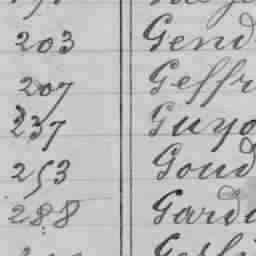 203 Gend
207 Geffr
237 Guyo
253 Goud
288 Gard